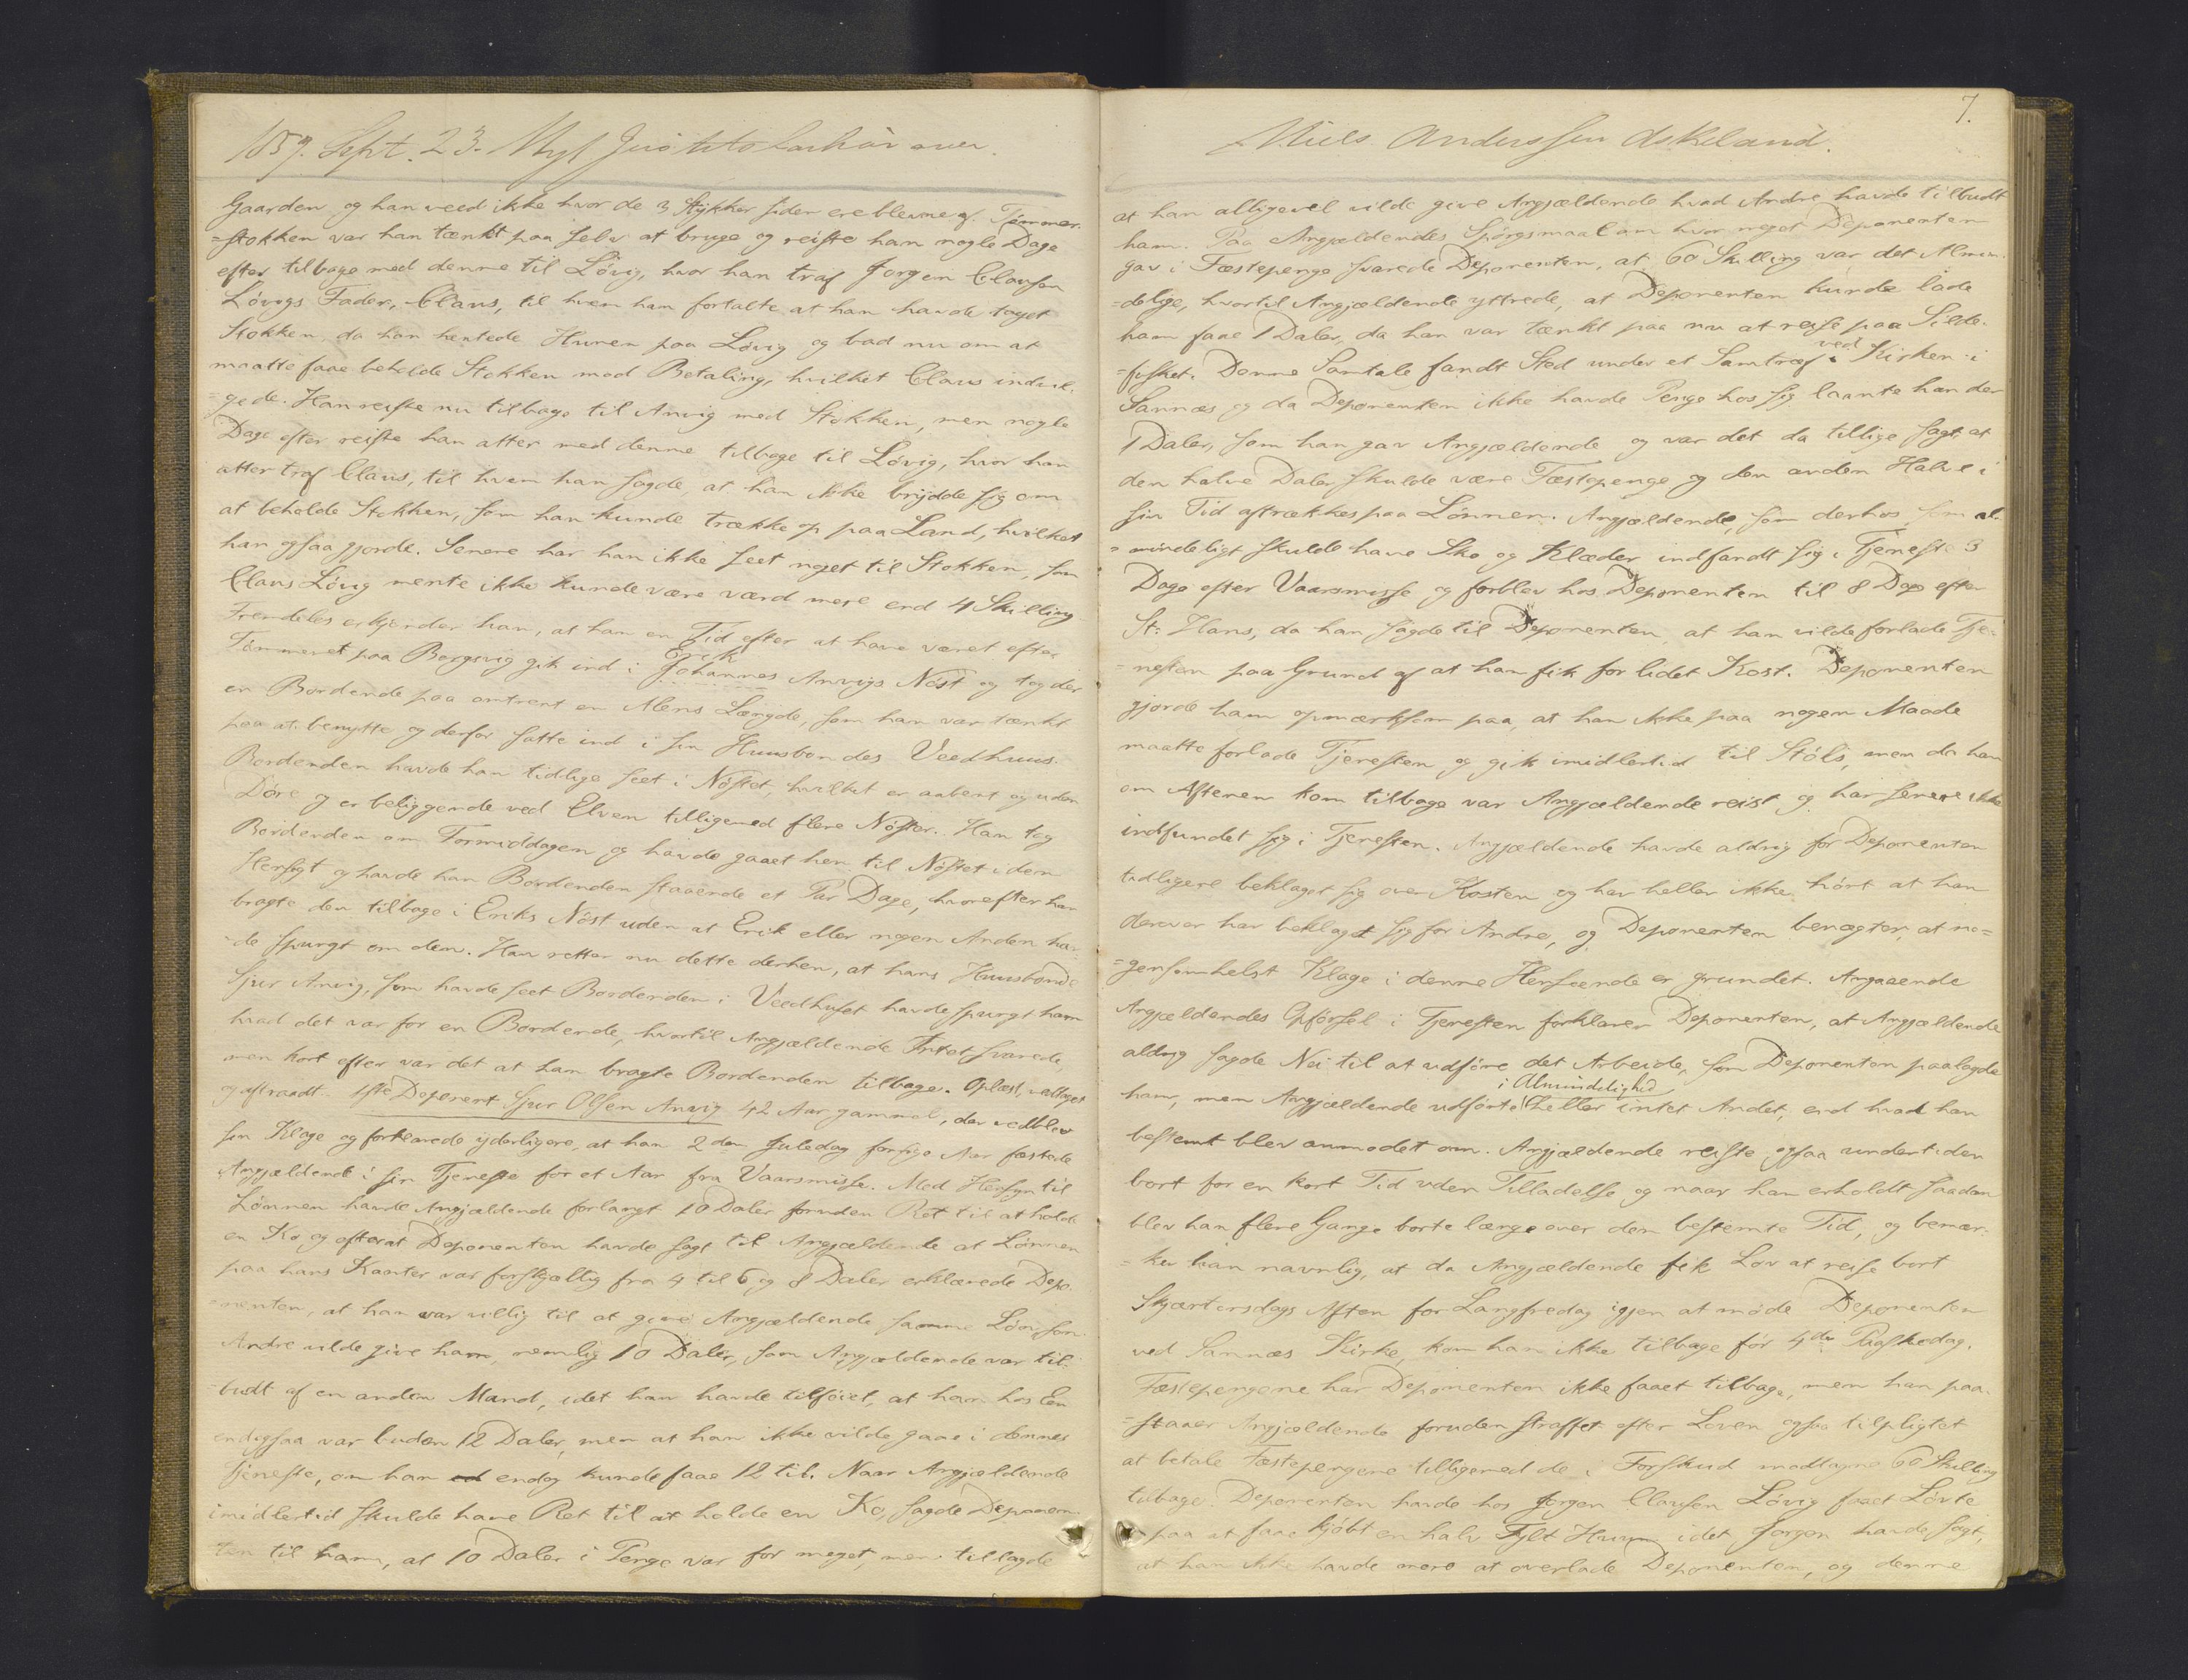 1859. Sept. 23.
Gaarden og han veed ikke hvor de 3 Stykker siden ere blevne af. Tømmer-
=stokken var han tænkt paa selv at bruge og reiste han nogle Dage
efter tilbage med denne til Løvig, hvor han traf Jørgen Clausen
Løvigs Fader, Claus, til hvem han fortalte at han havde taget
Stokken, da han hentede Hunen paa Løvig og bad nu om at
maatte faae beholde Stokken mod Betaling, hvilket Claus indvil-
=gede. Han reiste nu tilbage til Anvig med Stokken, men nogle
Dage efter reiste han atter med denne tilbage til Løvig, hvor han
atter traf Claus, til hvem han sagde, at han ikke brydde sig om
at beholde Stokken, som han kunde trække op paa Land, hvilket
han ogsaa gjorde. Senere har han ikke seet noget til Stokken, som
Claus Løvig mente ikke kunde være værd mere end 4 Skilling
Fremdeles erkjender han, at han en Tid efter at have været efter
Tømmeret paa Borgsvig gik ind i Johannes Erik Anvigs Nøst og tog der
en Bordende paa omtrent en Alens Længde, som han var tænkt
paa at benytte og derfor satte ind i sin Huusbondes Veedhuus.
Bordenden havde han tidlige seet i Nøstet, hvilket er aabent og uden
Døre og er beliggende ved Elven tilligemed flere Nøster. Han tog
Bordenden om Formiddagen og havde gaaet hen til Nøstet i den
Hensigt og havde han Bordenden staaende et Par Dage, hvorefter han
bragte den tilbage i Eriks Nøst uden at Erik eller nogen Anden hav-
=de spurgt om den. Han retter nu dette derhen, at hans Huusbonde
Sjur Anvig, som havde seet Bordenden i Veedhuset havde spurgt ham
hvad det var for en Bordende, hvortil Angjældende Intet svarede,
men kort efter var det at han bragte Bordenden tilbage. Oplæst, vedtaget
og aftraadt. 1ste Deponent Sjur Olsen Anvig 42 Aar gammel, der vedblev
sin Klage og forklarede yderligere, at han 2den Juledag forrige Aar fæstede
Angjældende i sin Tjeneste for et Aar fra Vaarsmisse. Med Hensyn til
Lønnen havde Angjældende forlangt 10 Daler foruden Ret til at holde
en Ko og efterat Deponenten havde sagt til Angjældende at Lønnen
paa hans Kanter var forskjællig fra 4 til 6 og 8 Daler erklærede Depo-
=nenten, at han var villig til at give Angjældende samme Løn, som
Andre vilde give ham, nemlig 10 Daler, som Angjældende var til-
=budt af en anden Mand, idet han havde tilføiet, at han hos En
endogsaa var buden 12 Daler, men at han ikke vilde gaae i dennes
Tjeneste, om han endog kunde faae 12 til. Naar Angjældende
imidlertid skulde have Ret til at holde en Ko, sagde Deponen-
ten til ham, at 10 Daler i Penge var for meget, men tillagde
7.
Niels Anderssen Askeland.
at han alligevel vilde give Angjældende hvad Andre havde tilbudt
ham. Paa Angjældendes Spørgsmaal om hvor meget Deponenten
gav i Fæstepenge svarede Deponenten, at 60 Skilling var det Almin-
=delige, hvortil Angjældende yttrede, at Deponenten kunde lade
ham faae 1 Daler, da han var tænkt paa nu at reise paa Silde-
=fisket. Denne Samtale fandt Sted under et Samtræf ved Kirken i
Sannæs og da Deponenten ikke havde Penge hos sig laante han der
1 Daler, som han gav Angjældende og var det da tillige sagt, at
den halve Daler skulde være Fæstepenge og den anden Halve i
sin Tid aftrækkes paa Lønnen. Angjældende, som derhos som al-
=mindeligt skulde have Sko og Klæder indfandt sig i Tjeneste 3
Dage efter Vaarsmisse og forblev hos Deponenten til 8 Dage efter
St: Hans, da han sagde til Deponenten, at han vilde forlade Tje-
=nesten paa Grund af at han fik for lidet Kost. Deponenten
gjorde ham opmærksom paa, at han ikke paa nogen Maade
maatte forlade Tjenesten og gik imidlertid til Støls, men da han
om Aftenen kom tilbage var Angjældende reist og har senere ikke
indfundet sig i Tjenesten. Angjældende havde aldrig for Deponenten
tidligere beklaget sig over Kosten og har heller ikke hørt at han
derover har beklaget sig for Andre, og Deponenten benægter, at no=
=gensomhelst Klage i denne Henseende er grundet. Angaaende
Angjældendes Opførsel i Tjenesten forklarer Deponenten, at Angjældende
aldrig sagde Nei til at udføre det Arbeide, som Deponenten paalagde
ham, men Angjældende udførte i Almindelighed heller intet Andet, end hvad han
bestemt blev anmodet om. Angjældende reiste ogsaa undertiden
bort for en kort Tid uden Tilladelse og naar han erholdt saadan
blev han flere Gange borte længe over den bestemte Tid, og bemær-
=ker han navnlig, at da Angjældende fik Lov at reise bort
Skjærtorsdags Aften for Langfredag igjen at møde Deponenten
ved Sannæs Kirke, kom han ikke tilbage før 4de Paaskedag.
Fæstepengene har Deponenten ikke faaet tilbage, men han paa-
=staaer Angjældende foruden straffet efter Loven ogsaa tilpligtet
at betale Fæstepengene tilligemed de i Forskud modtagne 60 Skilling
tilbage. Deponenten havde hos Jørgen Clausen Løvig faaet Løvte
paa at faae kjøbt en halv Tylt Huun, idet Jørgen havde sagt,
at han ikke havde mere at overlade Deponenten, og denne